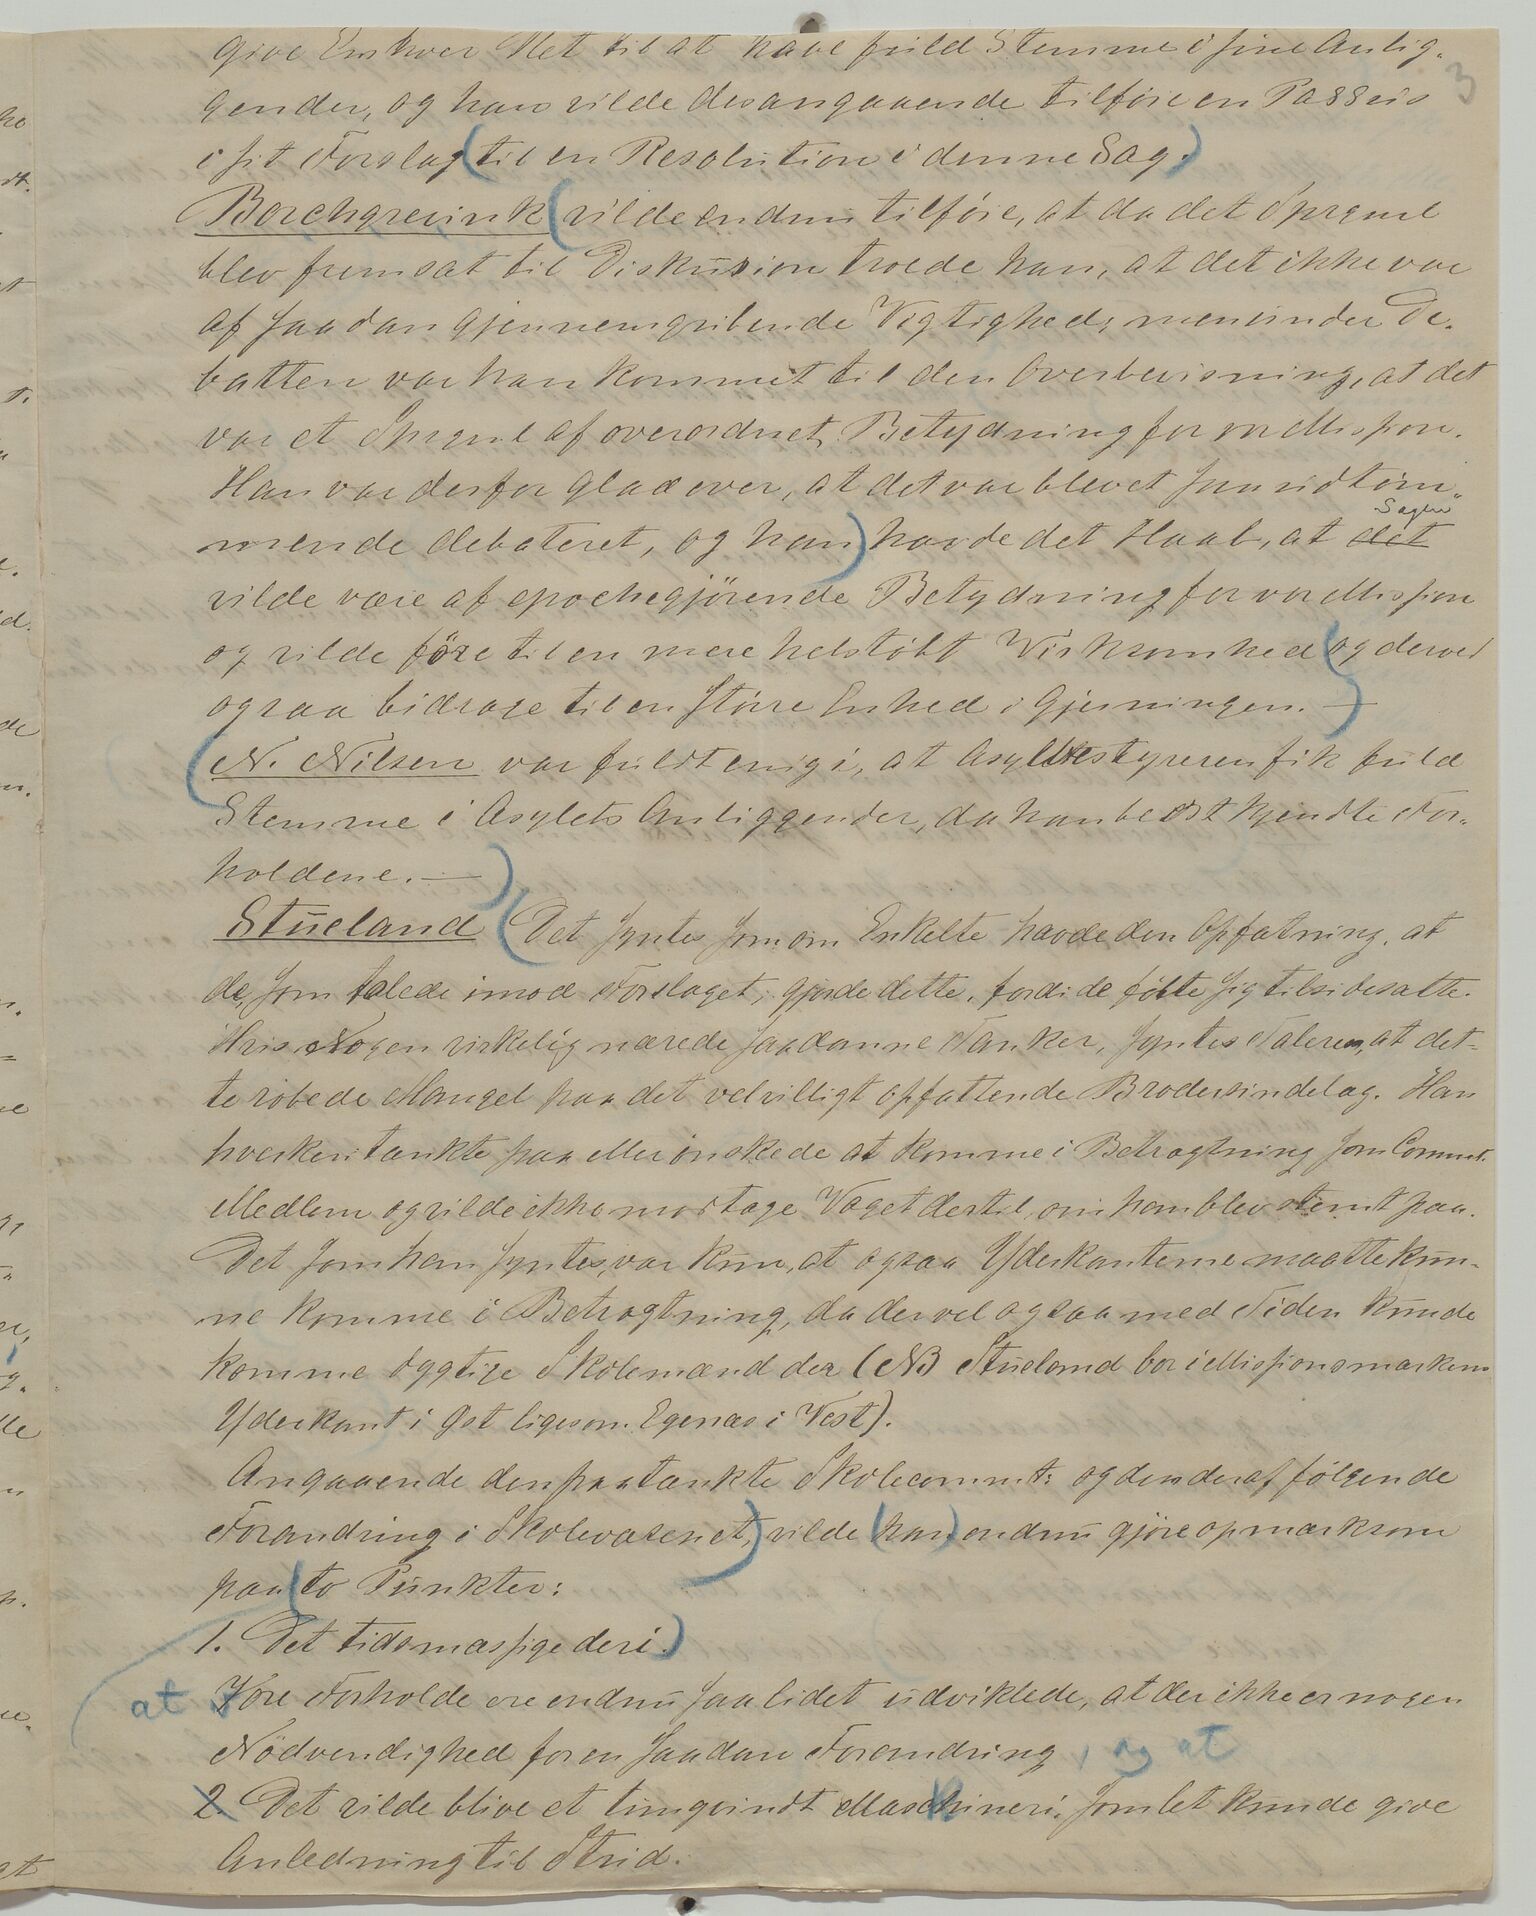 give Enhver Ret til at have fuld Stemme i sine Anlig-
gender, og han vilde desangaaende tilføie en Passus
i sit Forslag (til en Resolution i denne Sag.)
3
Borchgrevink (vilde endnu tilføie, at da det Spørgsml
blev fremsat til Diskusion troede han, at det ikke var
af saadan gjennemgribende Vigtighed; men under De-
batten var han kommet til den Overbevisning, at det
var et Spørgsml af overordnet Betydning for vor Mission.
Han var derfor glad over, at det var blevet saa udtøm-
Sagen
mende debateret, og han) havde det Haab, at det
vilde være af epochegjørende Betydning for vor Mission
og vilde føre til en mere helstøbt Virksomhed (og derved
ogsaa bidrage til en større Enhed i Gjerningen. —)
(N. Nilsen var fuldt enig i, at Asylbestyreren fik fuld
Stemme i Asylets Anliggender, da han bedst kjendte For-
holdene. —)
Stueland (Det syntes som om Enkelte havde den Opfatning, at
de, som talede imod Forslaget, gjorde dette, fordi de følte sig tilsidesatte.
Hvis Nogen virkelig nærede saadanne Tanker, syntes Taleren, at det-
te røbede Mangel paa det velvilligt opfattende Brodersindelag. Han
hverken tænkte paa eller ønskede at komme i Betragtning som Commt.
Medlem og vilde ikke modtage Valget dertil, om han blev stemt paa.
Det som han syntes, var kun, at ogsaa Yderkanterne maatte kun-
ne komme i Betragtning, da der vel ogsaa med Tiden kunde
komme dygtige Skolemænd der (NB Stueland bor i Missionsmarkens
Yderkant i Øst ligesom Egenæs i Vest).
Angaaende den paatænkte Skolecommt: og den deraf følgende
Forandring i Skolevæsenet,) vilde (han) endnu gjøre opmærksom
paa (to Punkter:
1. Det tidsmæssige deri.)
at Vore Forholde ere endnu saa lidet udviklede, at der ikke er nogen
Nødvendighed for en saadan Forandring, og at
2. Det vilde blive et tungvindt Maskineri, som let kunde give
Anledning til Strid.